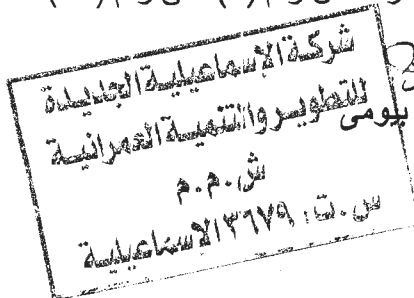 شركة الإسماعيلية الجديدة
للتطوير والتنمية العمرانية
ش.م.م
س.ت. ٣٦٧٩ الإسماعيلية
بيومى